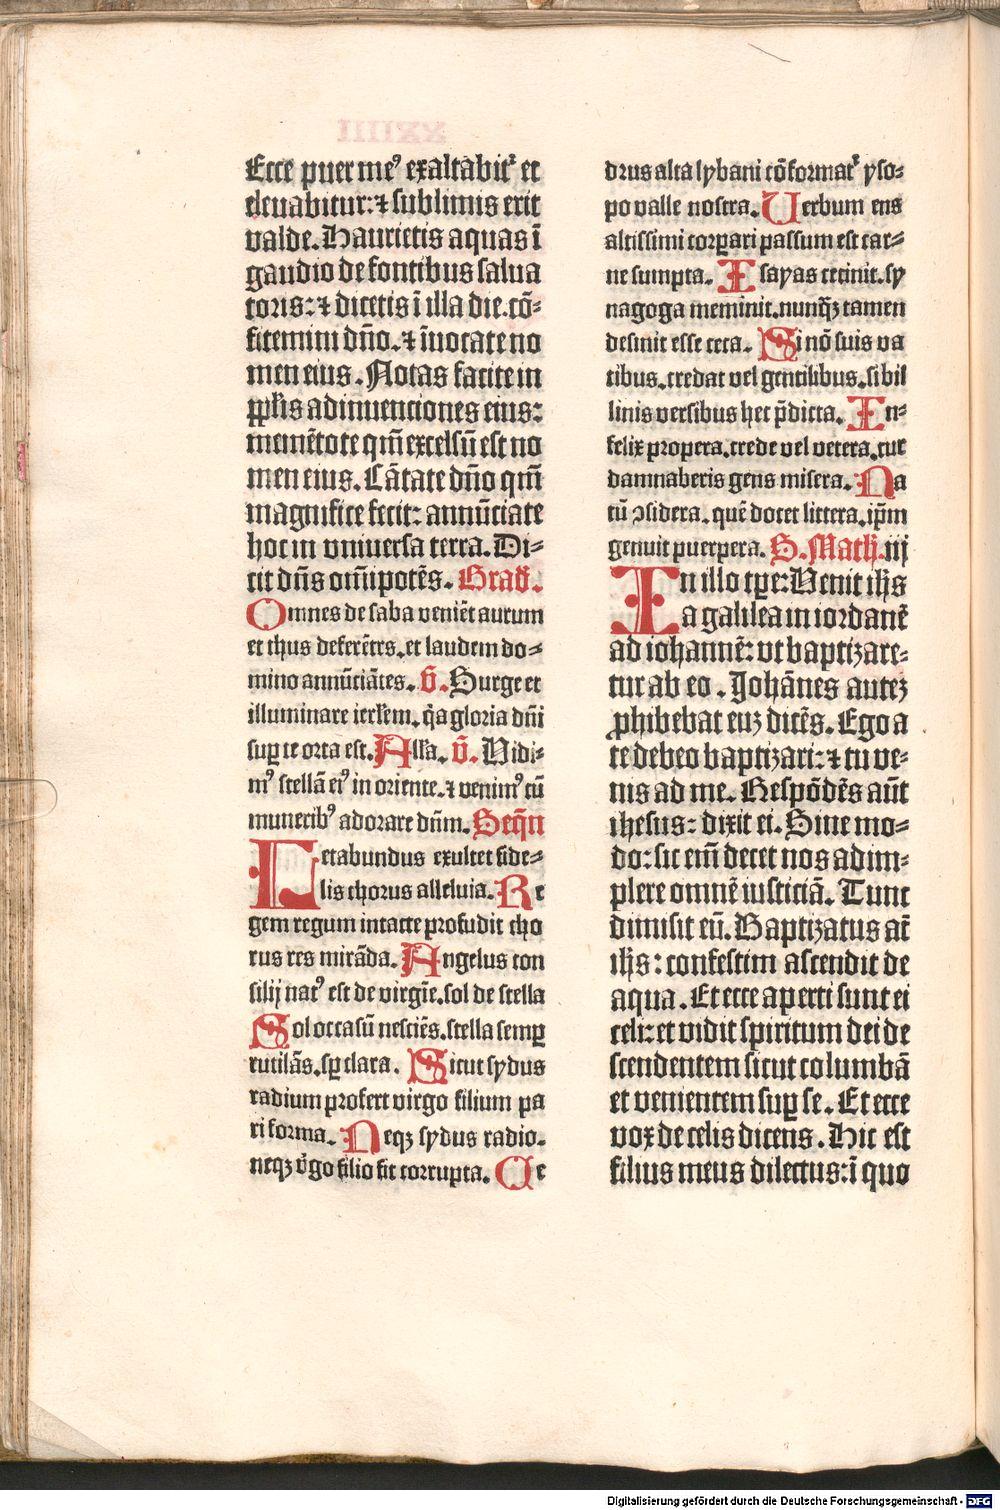 Ecce puer me⁹ exaltabit᷑ et
eleuabitur: ⁊ sublimis erit
valde. Haurietis aquas ī
gaudio de fontibus salua
toris: ⁊ dicetis ī illa die. cō-
fitemini dño. ⁊ īuocate no
men eius. Notas facite in
pplīs adinuenciones eius:
memētote qm̄ excelsū est no
men eius. Cātate dño qm̄
magnifice fecit: annūciate
hoc in vniuersa terra. Di-
cit dn̄s om̄ipotēs. Grad̄.
Omnes de saba veniēt aurum
et thus deferētes. et laudem do-
mino annūciātes. v̄. Surge et
illuminare ierl̄em. q̄a gloria dn̄i
suꝑ te orta est. Alla. v̄. Vidi-
m⁹ stellā ei⁹ in oriente. ⁊ venim⁹ cū
munerib⁹ adorare dn̄m. Seqn̄
Letabundus exultet fide-
lis chorus alleluia. Re
gem regum intacte profudit tho
rus res mirāda. Angelus con
silij nat⁹ est de virgīe. sol de stella
Sol occasū nesciēs. stella semꝑ
rutilās. sꝑ clara. Sicut sydus
radium profert virgo filium pa
ri forma. Neqꝫ sydus radio.
neqꝫ v̄go filio fit corrupta. Ce
drus alta lybani cōformat᷑ yso-
po valle nostra. Verbum ens
altissimi corꝑari passum est car-
ne sumpta. Isayas cecinit. sy
nagoga meminit. nunq̄ꝫ tamen
desinit esse ceca. Si nō suis va
tibus. credat vel gentilibus. sibil
linis versibus hec p̄dicta. In-
felix propera. crede vel vetera. cur
damnaberis gens misera. Na
tū ꝯsidera. quē docet littera. ip̄m
genuit puerpera. S. Math̄. iij
In illo tꝑe: Venit ih̄s
a galilea in iordanē
ad iohannē: vt baptizare-
tur ab eo. Johānes auteꝫ
ꝓhibebat euꝫ dicēs. Ego a
te debeo baptizari: ⁊ tu ve-
nis ad me. Respōdēs aūt
ihesus: dixit ei. Sine mo-
do: sic em̄ decet nos adim-
plere omnē iusticiā. Tunc
dimisit eū. Baptizatus at̄
ih̄s: confestim ascendit de
aqua. Et ecce aperti sunt ei
celi: et vidit spiritum dei de
scendentem sicut columbā
et venientem suꝑ se. Et ecce
vox de celis dicens. Hic est
filius meus dilectus: ī quo
Digitalisierung gefördert durch die Deutsche Forschungsgemeinschaft - DFG